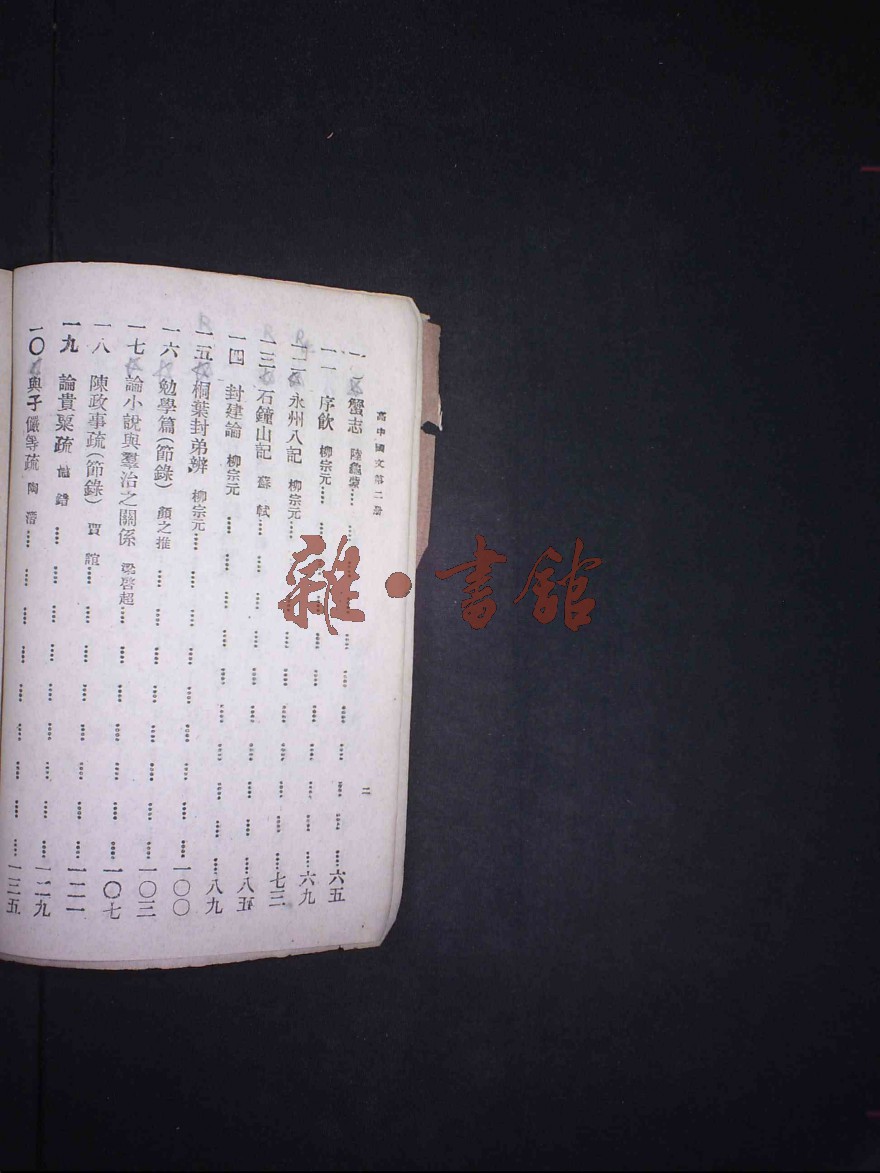 高中國文第二冊
一〇 蟹志 陸龜蒙 …… 六五
一一 序飲 柳宗元 …… 六九
一二 永州八記 柳宗元 …… 七三
一三 石鐘山記 蘇軾 …… 八五
一四 封建論 柳宗元 …… 八九
一五 桐葉封弟辨 柳宗元 …… 一〇〇
一六 勉學篇(節錄) 顏之推 …… 一〇三
一七 論小說與羣治之關係 梁啓超 …… 一〇七
一八 陳政事疏(節錄) 賈誼 …… 一二一
一九 論貴粟疏 鼂錯 …… 一二九
一〇 與子儼等疏 陶潛 …… 一三五
二
雜·書館